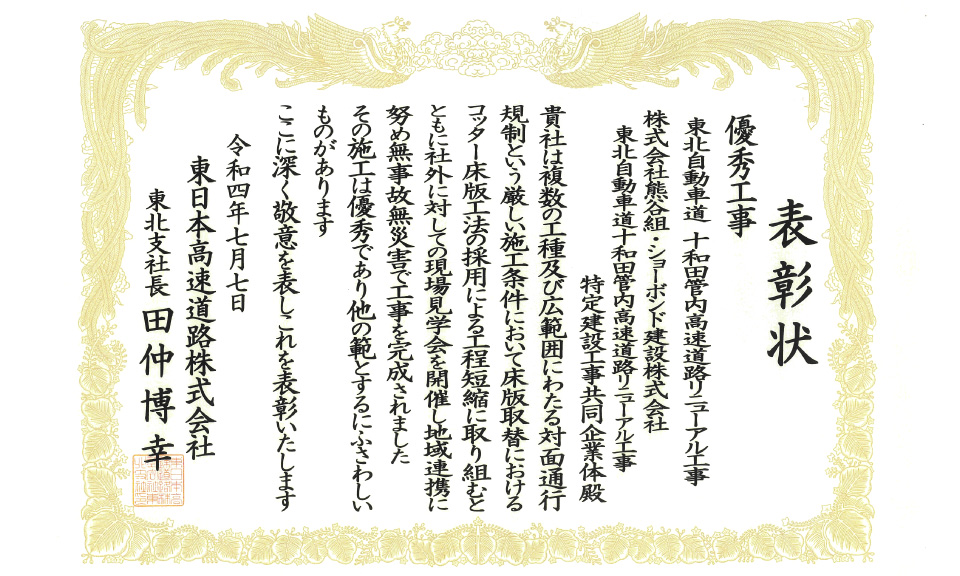 表彰状
優秀工事
東北自動車道 十和田管内高速道路リニューアル工事
株式会社熊谷組・ショーボンド建設株式会社
東北自動車道十和田管内高速道路リニューアル工事
特定建設工事共同企業体殿
貴社は複数の工種及び広範囲にわたる対面通行
規制という厳しい施工条件において床版取替における
コッター床版工法の採用による工程短縮に取り組むと
ともに社外に対しての現場見学会を開催し地域連携に
努め無事故無災害で工事を完成されました
その施工は優秀であり他の範とするにふさわしい
ものがあります
ここに深く敬意を表しこれを表彰いたします
令和四年七月七日
東日本高速道路株式会社
東北支社長 田仲博幸